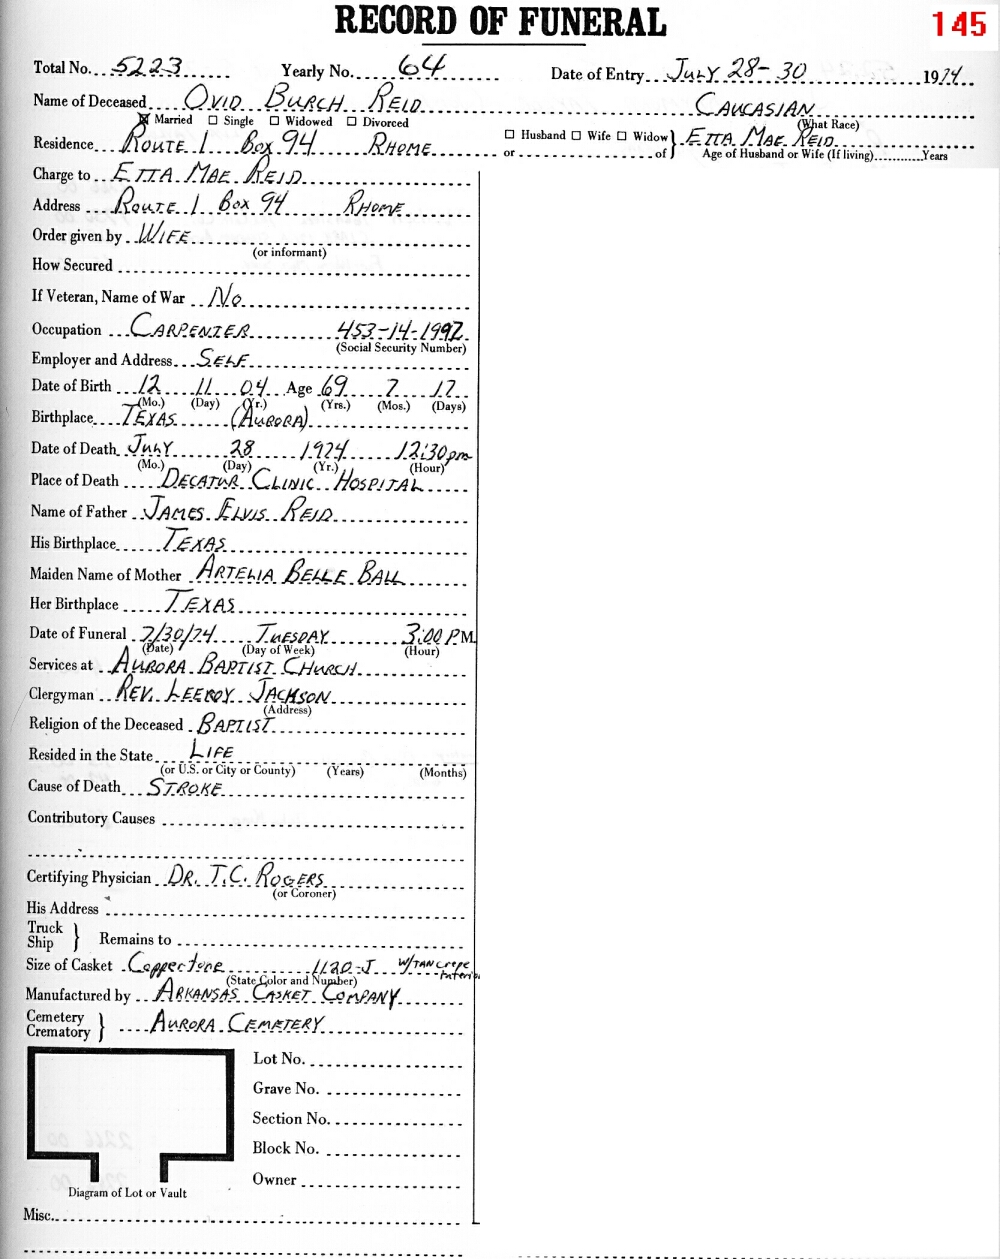 RECORD OF FUNERAL
145
Total No. 5223 Yearly No. 64 Date of Entry July 28-30 1974
Name of Deceased Ovid Burch Reid Caucasian
☒ Married ☐ Single ☐ Widowed ☐ Divorced (What Race)
Residence Route 1 Box 94 Rhome ☐ Husband ☐ Wife ☐ Widow or of } Etta Mae Reid
Age of Husband or Wife (If living) Years
Charge to Etta Mae Reid
Address Route 1 Box 94 Rhome
Order given by Wife
(or informant)
How Secured
If Veteran, Name of War No
Occupation Carpenter 453-14-1992
(Social Security Number)
Employer and Address Self
Date of Birth 12 11 04 Age 69 7 17
(Mo.) (Day) (Yr.) (Yrs.) (Mos.) (Days)
Birthplace Texas (Aurora)
Date of Death July 28 1974 12:30pm
(Mo.) (Day) (Yr.) (Hour)
Place of Death Decatur Clinic Hospital
Name of Father James Elvis Reid
His Birthplace Texas
Maiden Name of Mother Artelia Belle Ball
Her Birthplace Texas
Date of Funeral 7/30/74 Tuesday 3:00 P.M.
(Date) (Day of Week) (Hour)
Services at Aurora Baptist Church
Clergyman Rev. Leeroy Jackson
(Address)
Religion of the Deceased Baptist
Resided in the State Life
(or U.S. or City or County) (Years) (Months)
Cause of Death Stroke
Contributory Causes
Certifying Physician Dr. T.C. Rogers
(or Coroner)
His Address
Truck
Ship } Remains to
Size of Casket Coppertone 1120-J w/tan crepe interior
(State Color and Number)
Manufactured by Arkansas Casket Company
Cemetery
Crematory } Aurora Cemetery
Lot No.
Grave No.
Section No.
Block No.
Owner
Diagram of Lot or Vault
Misc.